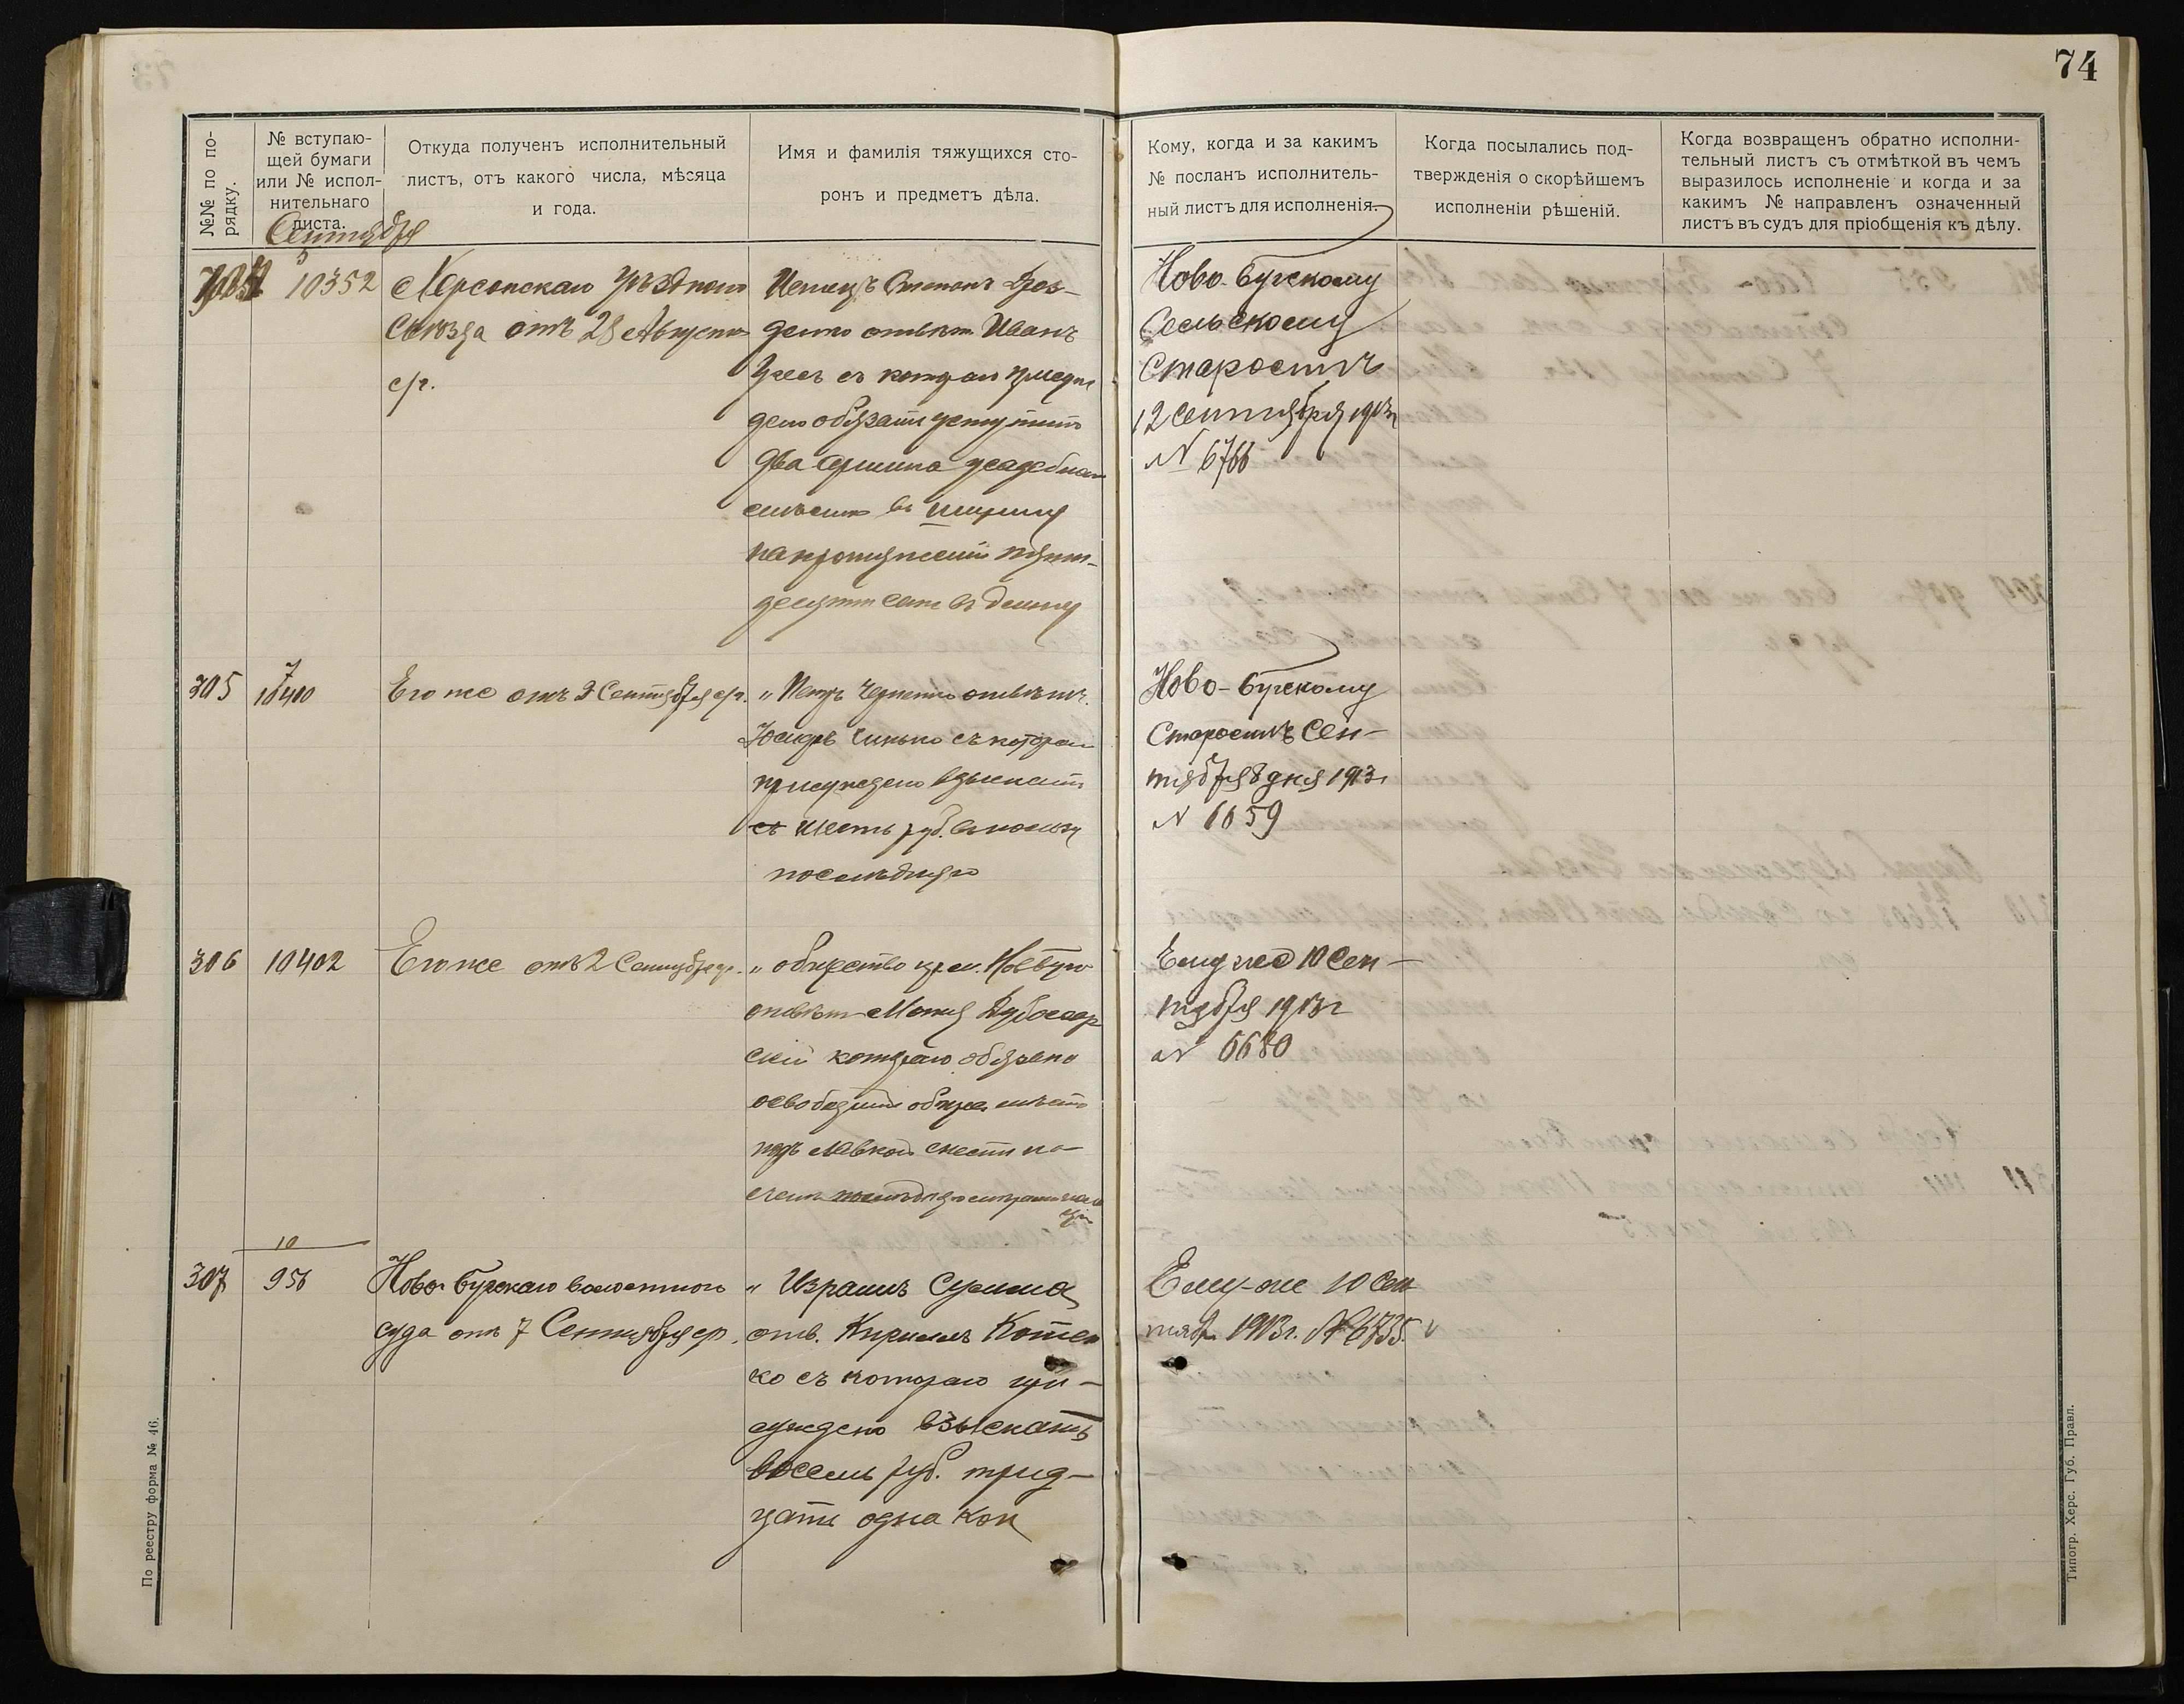 74
№№ по по-
рядку.
№ вступаю-
щей бумаги
или № испол-
нительнаго
листа.
Откуда полученъ исполнительный
листъ, отъ какого числа, мѣсяца
и года.
Имя и фамилія тяжущихся сто-
ронъ и предметъ дѣла.
Кому, когда и за какимъ
№ посланъ исполнитель-
ный листъ для исполненія.
Когда посылались под-
твержденія о скорѣйшемъ
исполненіи рѣшеній.
Когда возвращенъ обратно исполни-
тельный листъ съ отмѣткой въ чемъ
выразилось исполненіе и когда и за
какимъ № направленъ означенный
листъ въ судъ для пріобщенія къ дѣлу.
Сентября
5
10352
Херсонскаго Уѣзднаго
Съѣзда отъ 28 Августа
с/г.
Истецъ Степанъ
отвѣт. Иванъ
съ котораго присуж
дено обязать уступить
два аршина усадебнаго
мѣста въ ширину
на протяженіи пяти-
десяти саж. въ длину
Ново-Бугскому
Сельскому
Старостѣ
12 Сентября 1913 г
№ 6766
305
7
10400
Его же отъ 2 Сентября с/г.
" Петръ Черненко отвѣтч.
съ котораго
присуждено взыскать
шесть руб. въ пользу
послѣдняго
Ново-Бугскому
Старостѣ Сен-
тября 8 дня 1913 г
№ 6659
306
10402
Его же отъ 2 Сентября с/г.
" общество крес. Нов Буга
отвѣт. Дубосар
скій котораго обязано
освободить общес. мѣсто
подъ лавкой снести на
Ему же 10 Сен-
тября 1913 г
№ 6680
10
307
956
Ново-Бугскаго волостнаго
суда отъ 7 Сентября с/г.
" Израиль Сулима
отв. Кирилъ Котен
ко съ котораго при-
суждено взыскать
восемь руб. трид-
цать одна коп
Ему-же 10 Сен
тября 1913 г. № 6735.
По реестру форма № 46.
Типогр. Херс. Губ. Правл.